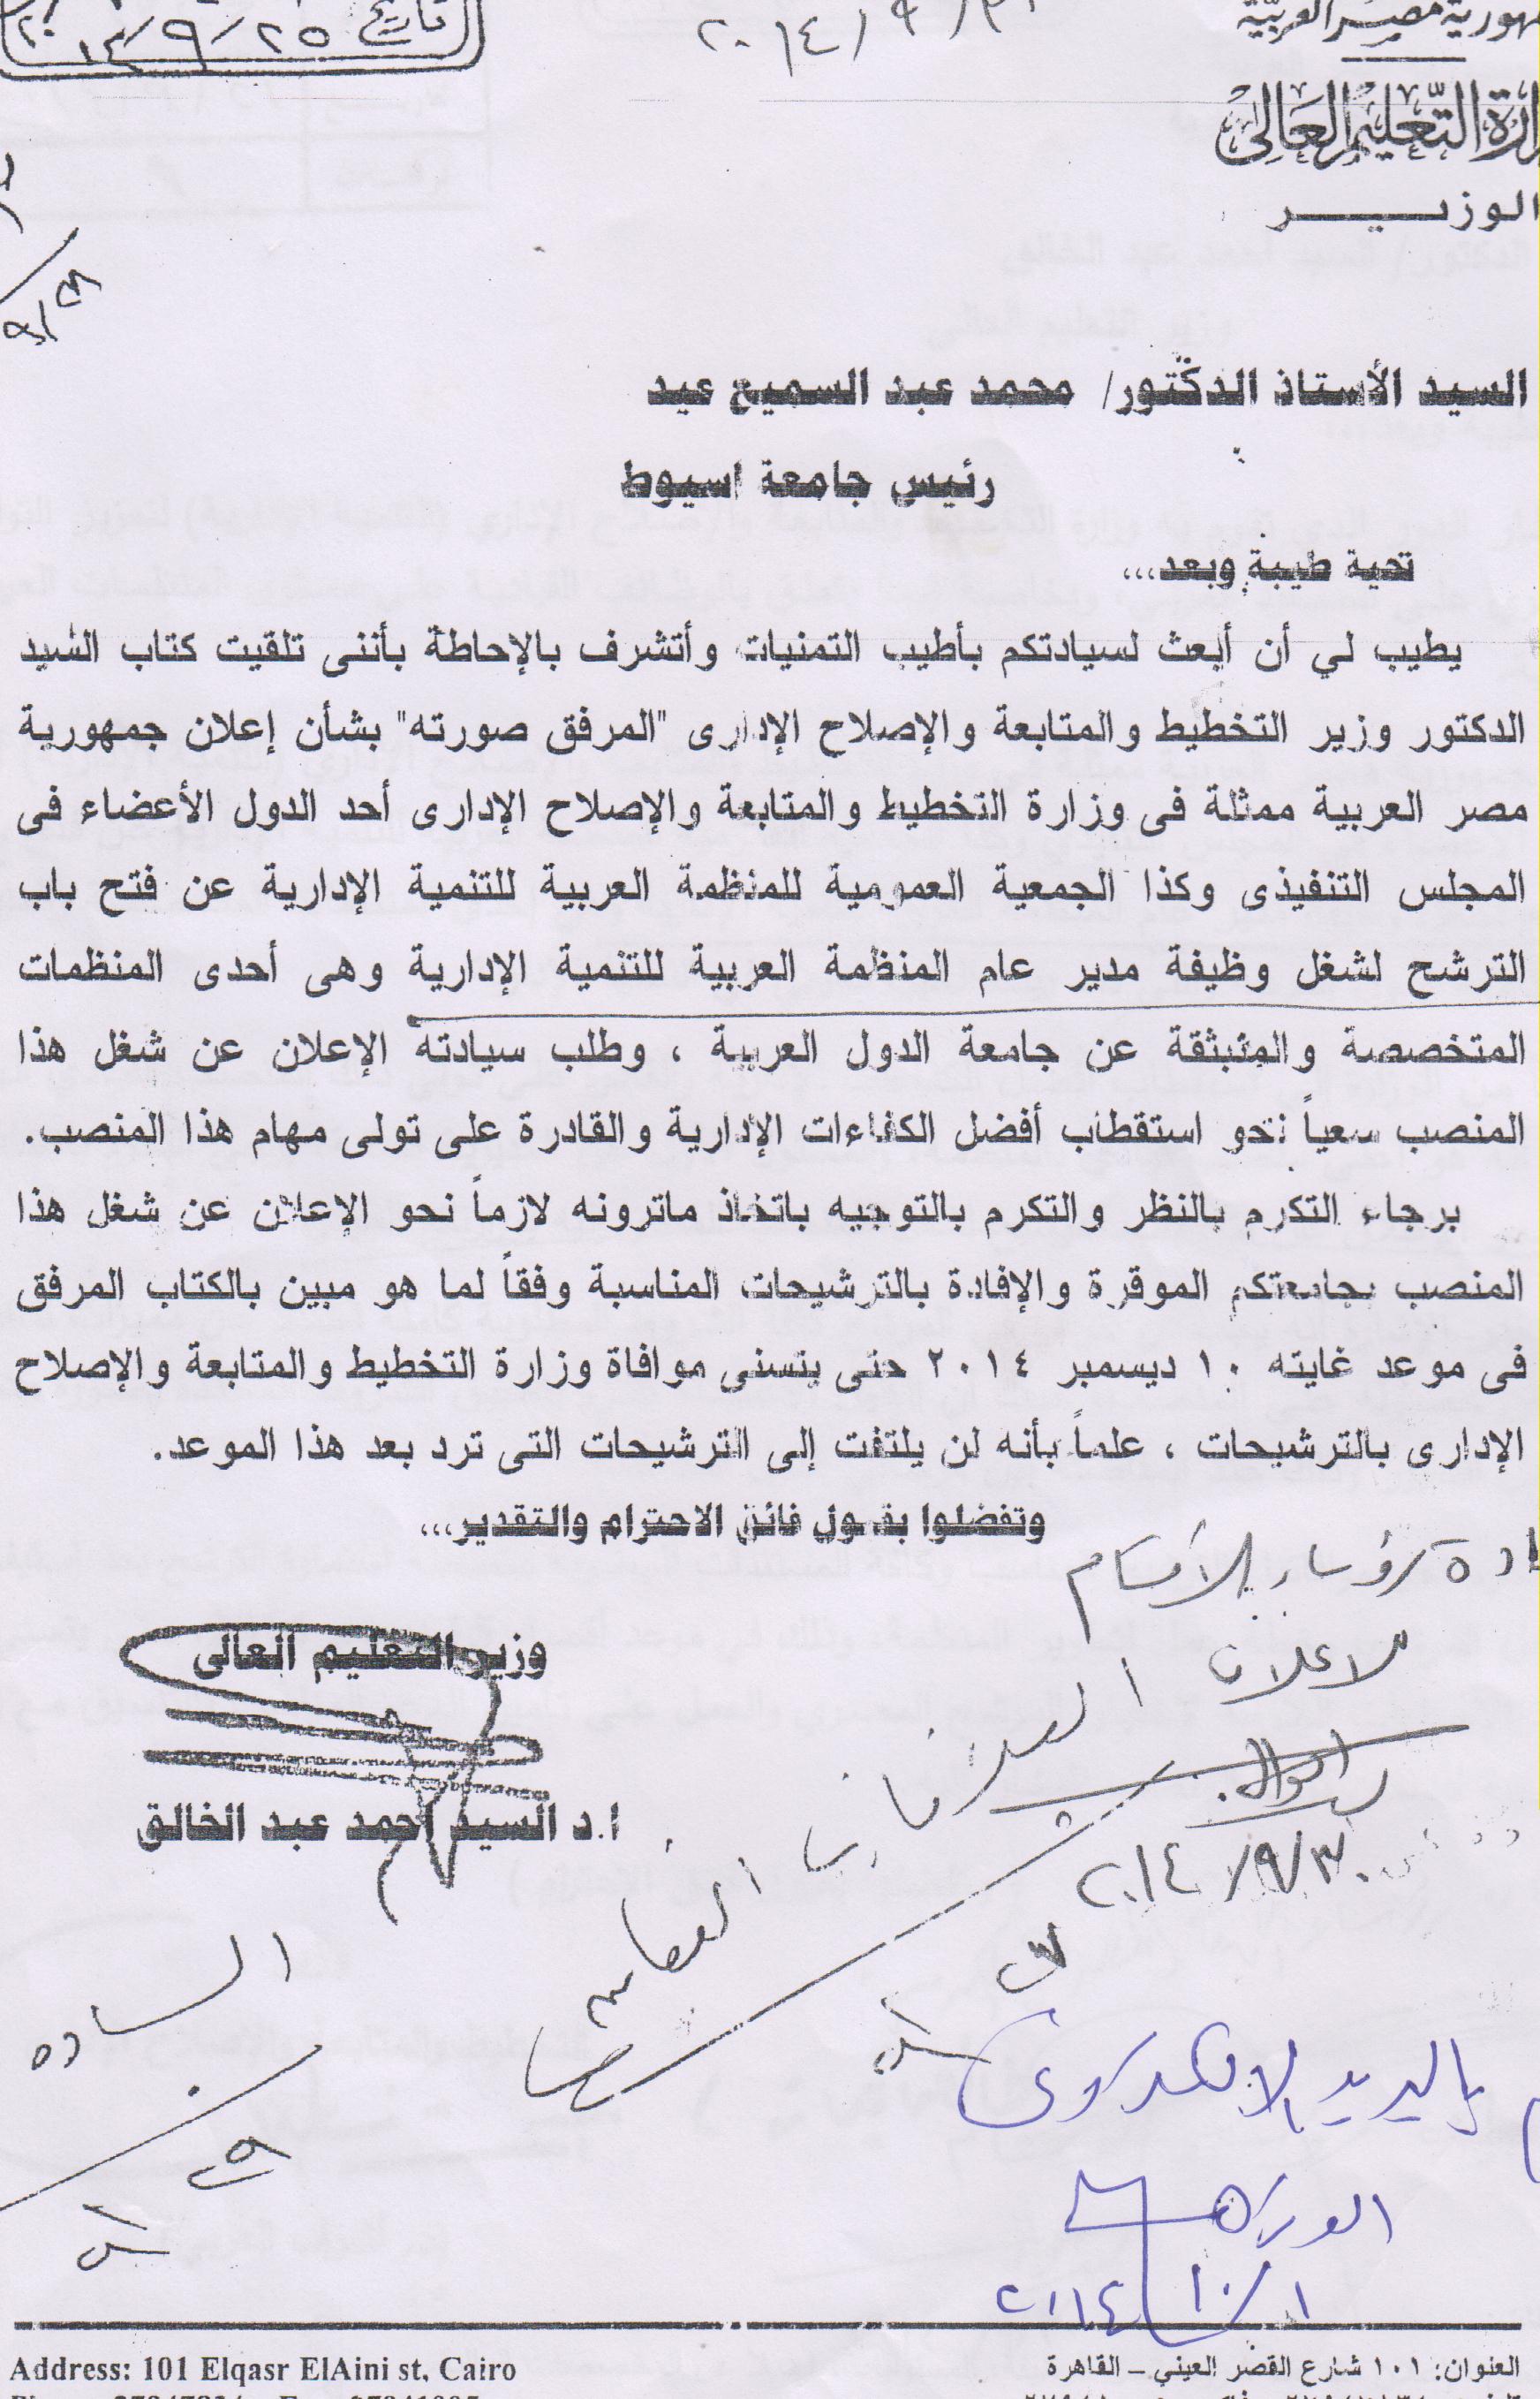 جمهورية مصر العربية
وزارة التعليم العالى
الوزيــــر
تاريخ ٢٥/٩/
السيد الأستاذ الدكتور/ محمد عبد السميع عيد
رئيس جامعة اسيوط
تحية طيبة وبعد،،،
يطيب لي أن أبعث لسيادتكم بأطيب التمنيات وأتشرف بالإحاطة بأننى تلقيت كتاب السيد
الدكتور وزير التخطيط والمتابعة والإصلاح الإدارى "المرفق صورته" بشأن إعلان جمهورية
مصر العربية ممثلة فى وزارة التخطيط والمتابعة والإصلاح الإدارى أحد الدول الأعضاء فى
المجلس التنفيذى وكذا الجمعية العمومية للمنظمة العربية للتنمية الإدارية عن فتح باب
الترشح لشغل وظيفة مدير عام المنظمة العربية للتنمية الإدارية وهى أحدى المنظمات
المتخصصة والمنبثقة عن جامعة الدول العربية ، وطلب سيادته الإعلان عن شغل هذا
المنصب سعياً نحو استقطاب أفضل الكفاءات الإدارية والقادرة على تولى مهام هذا المنصب.
برجاء التكرم بالنظر والتكرم بالتوجيه باتخاذ ماترونه لازماً نحو الإعلان عن شغل هذا
المنصب بجامعتكم الموقرة والإفادة بالترشيحات المناسبة وفقاً لما هو مبين بالكتاب المرفق
فى موعد غايته ١٠ ديسمبر ٢٠١٤ حتى يتسنى موافاة وزارة التخطيط والمتابعة والإصلاح
الإدارى بالترشيحات ، علماً بأنه لن يلتفت إلى الترشيحات التى ترد بعد هذا الموعد.
وتفضلوا بقبول فائق الاحترام والتقدير،،،
رؤساء الأقسام
للاعلان
وزير التعليم العالى
ا.د السيد احمد عبد الخالق
٢٠١٤/٩/٣٠
الساده
بالبريد الالكتروني
٢٠١٤/١٠/١
Address: 101 Elqasr ElAini st, Cairo
العنوان: ١٠١ شارع القصر العيني – القاهرة